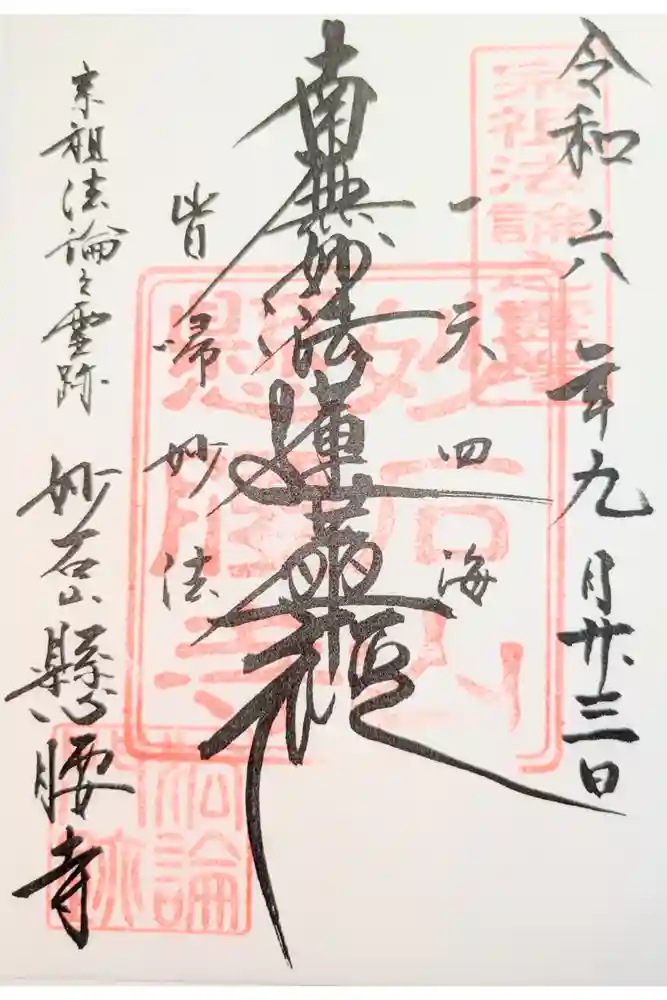 令和六年九月廿三日
宗祖法論之霊場
一天四海
南無妙法蓮華経
皆帰妙法
妙石山懸腰寺
宗祖法論之霊跡
妙石山懸腰寺
法論